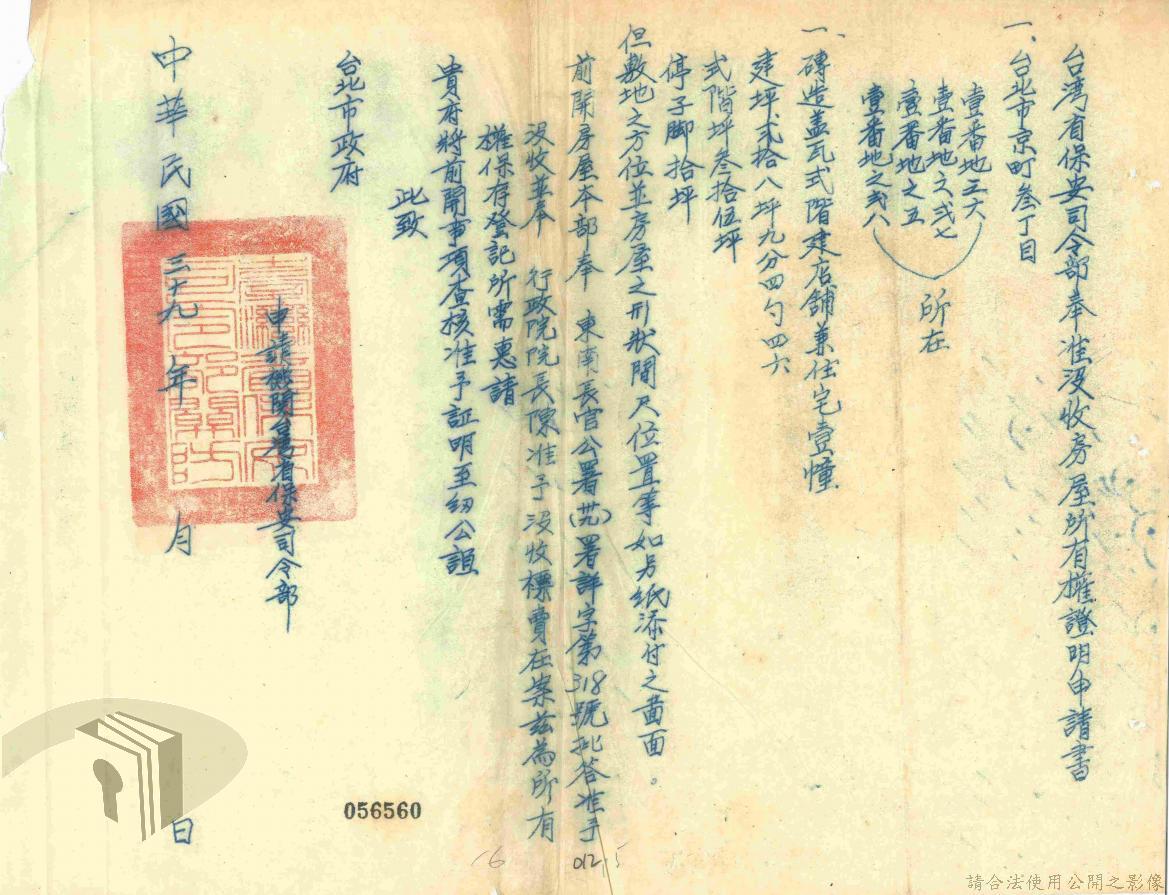 台湾省保安司令部奉准没收房屋所有權證明申請書
一、台北市京町叁丁目
壹番地三六
壹番地之弍七
壹番地之五
壹番地之弍八
所在
一、磚造盖瓦弍階建店舖兼住宅壹幢
建坪弍拾八坪九分四勺四六
弍階坪叁拾伍坪
停子脚拾坪
但敷地之方位並房屋之形狀間尺位置等如另紙添付之啚面。
前開房屋本部奉 東南長官公署(卅)署詳字第318號批答准予
没收並奉 行政院院長陳准予没收標賣在案茲為所有
權保存登記所需惠請
貴府將前開事項查核准予証明至纫公誼
此致
台北市政府
申請機関台湾省保安司令部
中華民國三十九年 月 日
臺灣省保安司令部關防
056560
16
012
5
請合法使用公開之影像